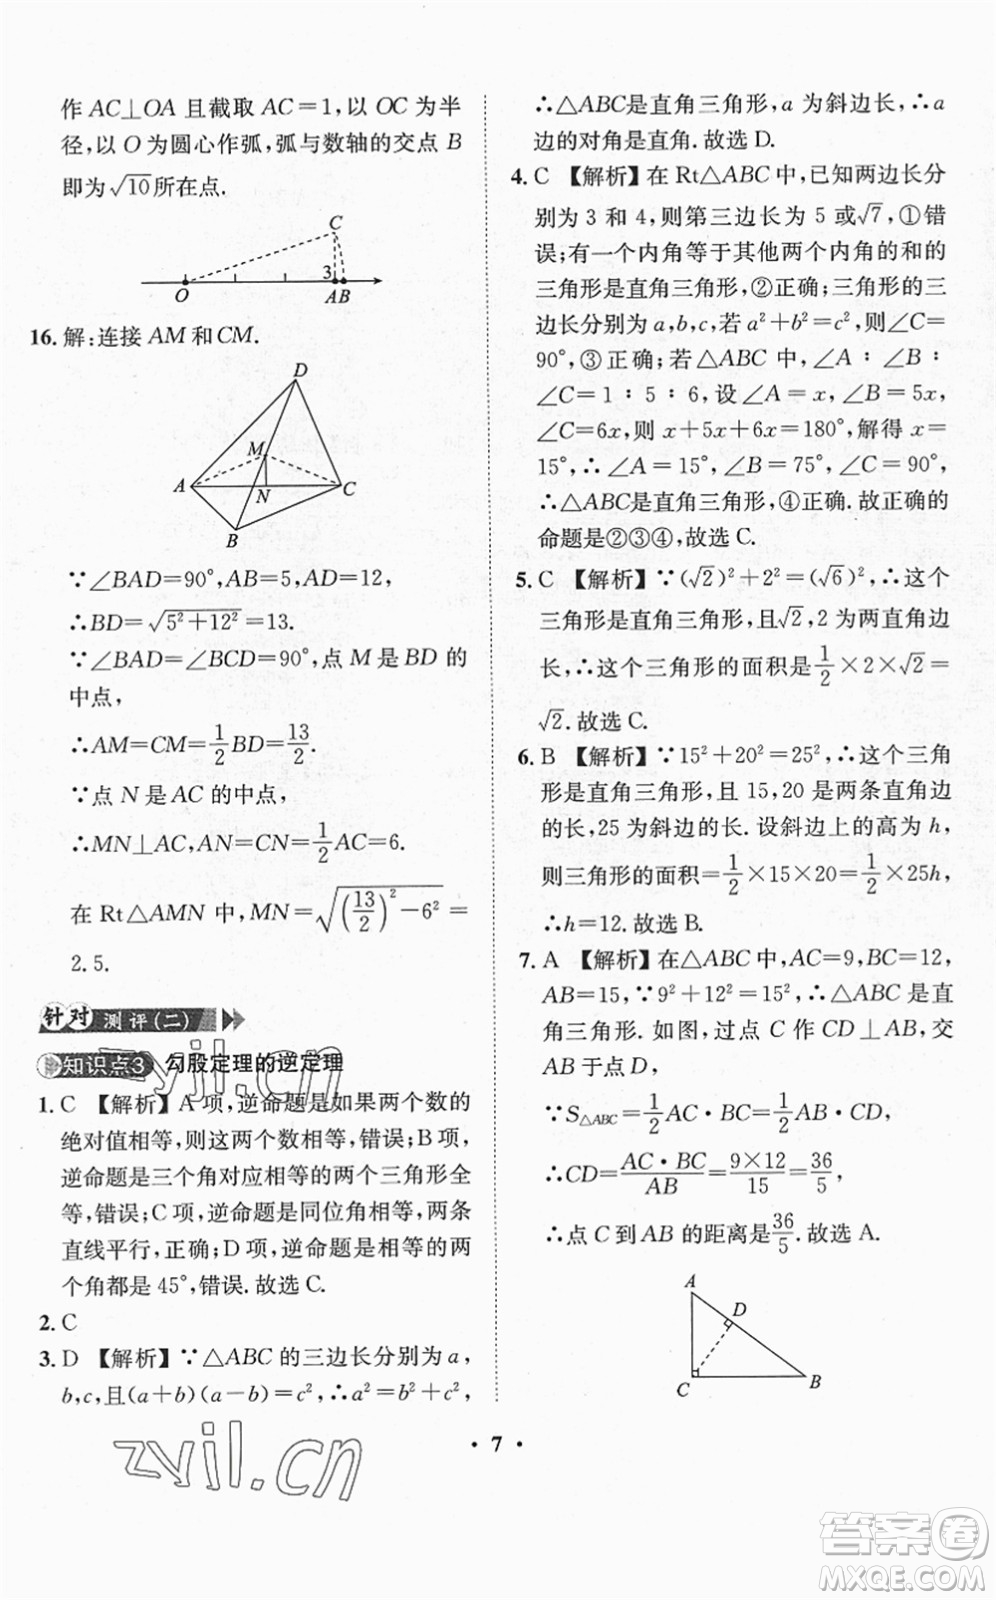 作 AC⊥OA 且截取 AC=1,以 OC 为半
径,以 O 为圆心作弧,弧与数轴的交点 B
即为√10所在点.
C
3
O
A B
16. 解:连接 AM 和 CM.
D
M
A
N
C
B
∵∠BAD=90°,AB=5,AD=12,
∴BD=√(5²+12²)=13.
∵∠BAD=∠BCD=90°,点 M 是 BD 的
中点,
∴AM=CM=1/2 BD=13/2.
∵点 N 是 AC 的中点,
∴MN⊥AC,AN=CN=1/2 AC=6.
在 Rt△AMN 中,MN=√((13/2)²-6²)=
2.5.
针对 测评(二)
知识点3 勾股定理的逆定理
1. C 【解析】A 项,逆命题是如果两个数的
绝对值相等,则这两个数相等,错误;B 项,
逆命题是三个角对应相等的两个三角形全
等,错误;C 项,逆命题是同位角相等,两条
直线平行,正确;D 项,逆命题是相等的两
个角都是 45°,错误.故选 C.
2. C
3. D 【解析】∵△ABC 的三边长分别为 a,
b,c,且(a+b)(a-b)=c²,∴a²=b²+c²,
∴△ABC是直角三角形,a 为斜边长,∴a
边的对角是直角.故选 D.
4. C 【解析】在 Rt△ABC 中,已知两边长分
别为 3 和 4,则第三边长为 5 或√7,①错
误;有一个内角等于其他两个内角的和的
三角形是直角三角形,②正确;三角形的三
边长分别为 a,b,c,若 a²+b²=c²,则∠C=
90°,③正确;若△ABC 中,∠A∶∠B∶
∠C=1∶5∶6,设∠A=x,∠B=5x,
∠C=6x,则 x+5x+6x=180°,解得 x=
15°,∴∠A=15°,∠B=75°,∠C=90°,
∴△ABC是直角三角形,④正确.故正确的
命题是②③④,故选 C.
5. C 【解析】∵(√2)²+2²=(√6)²,∴这个
三角形是直角三角形,且√2,2 为两直角边
长,∴这个三角形的面积是1/2×2×√2=
√2.故选 C.
6. B 【解析】∵15²+20²=25²,∴这个三角
形是直角三角形,且 15,20 是两条直角边
的长,25 为斜边的长. 设斜边上的高为 h,
则三角形的面积=1/2×15×20=1/2×25h,
∴h=12.故选 B.
7. A 【解析】在△ABC 中,AC=9,BC=12,
AB=15,∵9²+12²=15²,∴△ABC 是直
角三角形. 如图,过点 C 作 CD⊥AB,交
AB 于点 D,
∵S△ABC=1/2 AC·BC=1/2 AB·CD,
∴CD=AC·BC/AB=9×12/15=36/5,
∴点 C 到 AB 的距离是36/5.故选 A.
A
D
C
B
• 7 •
zyjl.cn
zyjl.cn
答案圈
MXQE.COM